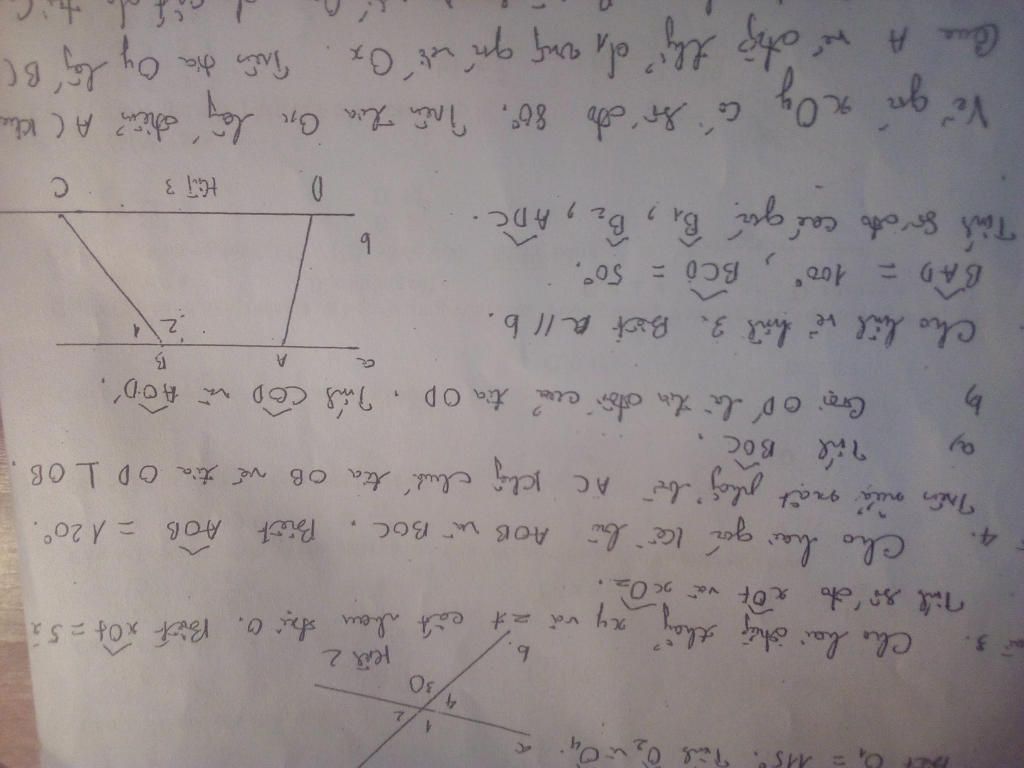 Biết Ô₁ = 115°. Tính Ô₂ và Ô₄.
a
1
2
4
3 O
b
Hình 2
3. Cho hai đường thẳng xy và zt cắt nhau tại O. Biết xOt = 5x
Tính số đo xOt và xOz.
4. Cho hai góc kề bù AOB và BOC. Biết AOB = 120°.
Trên nửa mặt phẳng bờ AC không chứa tia OB vẽ tia OD ⊥ OB.
a, Tính BOC.
b) Gọi OD' là tia đối của tia OD. Tính COD và AOD'.
Cho hình vẽ hình 3. Biết a // b.
BAD = 100°, BCD = 50°.
Tính số đo các góc B₁, B₂, ADC.
a
A
B
2
1
b
D
Hình 3
C
Vẽ góc xOy có số đo 80°. Trên tia Ox lấy điểm A (
Qua A vẽ đường thẳng d₁ vuông góc với Ox. Trên tia Oy lấy B (